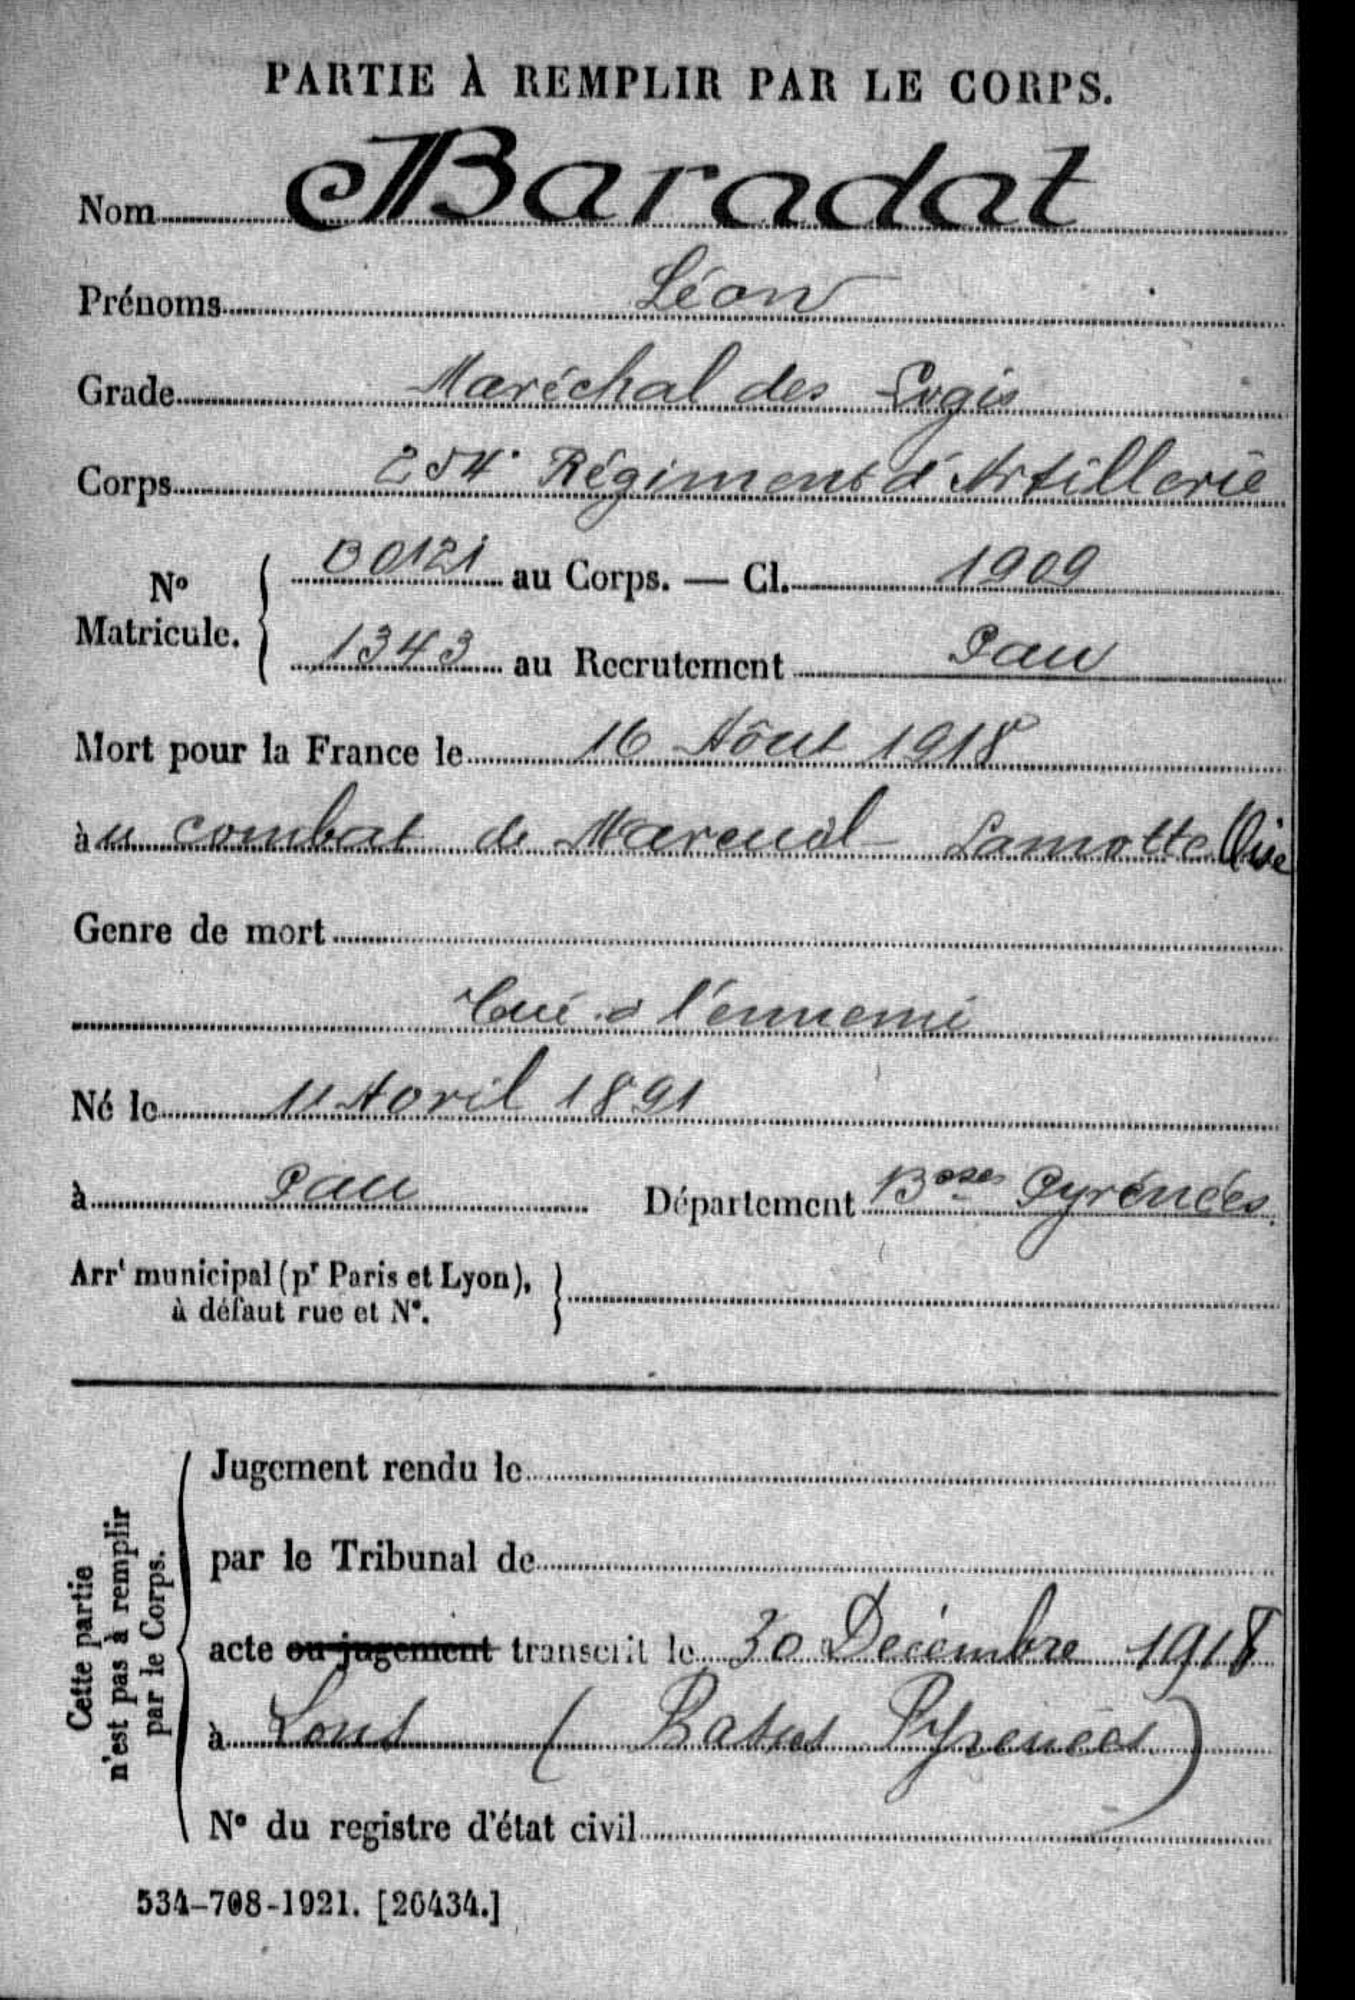 PARTIE À REMPLIR PAR LE CORPS.
Nom Baradat
Prénoms Léon
Grade Maréchal des Logis
Corps 254e Régiment d'Artillerie
No Matricule. { B0121 au Corps. — Cl. 1909
1343 au Recrutement Pau
Mort pour la France le 16 Aôut 1918
à u combat de Mareuil-Lamotte Oise
Genre de mort
Tué à l'ennemi
Né le 11 Avril 1891
à Pau Département Bses Pyrénées.
Arrt municipal (pr Paris et Lyon),
à défaut rue et No.
Cette partie
n'est pas à remplir
par le Corps.
Jugement rendu le
par le Tribunal de
acte ou jugement transcrit le 30 Decembre 1918
à Lons (Basses Pyrenées)
No du registre d'état civil
534-708-1921. [26434.]